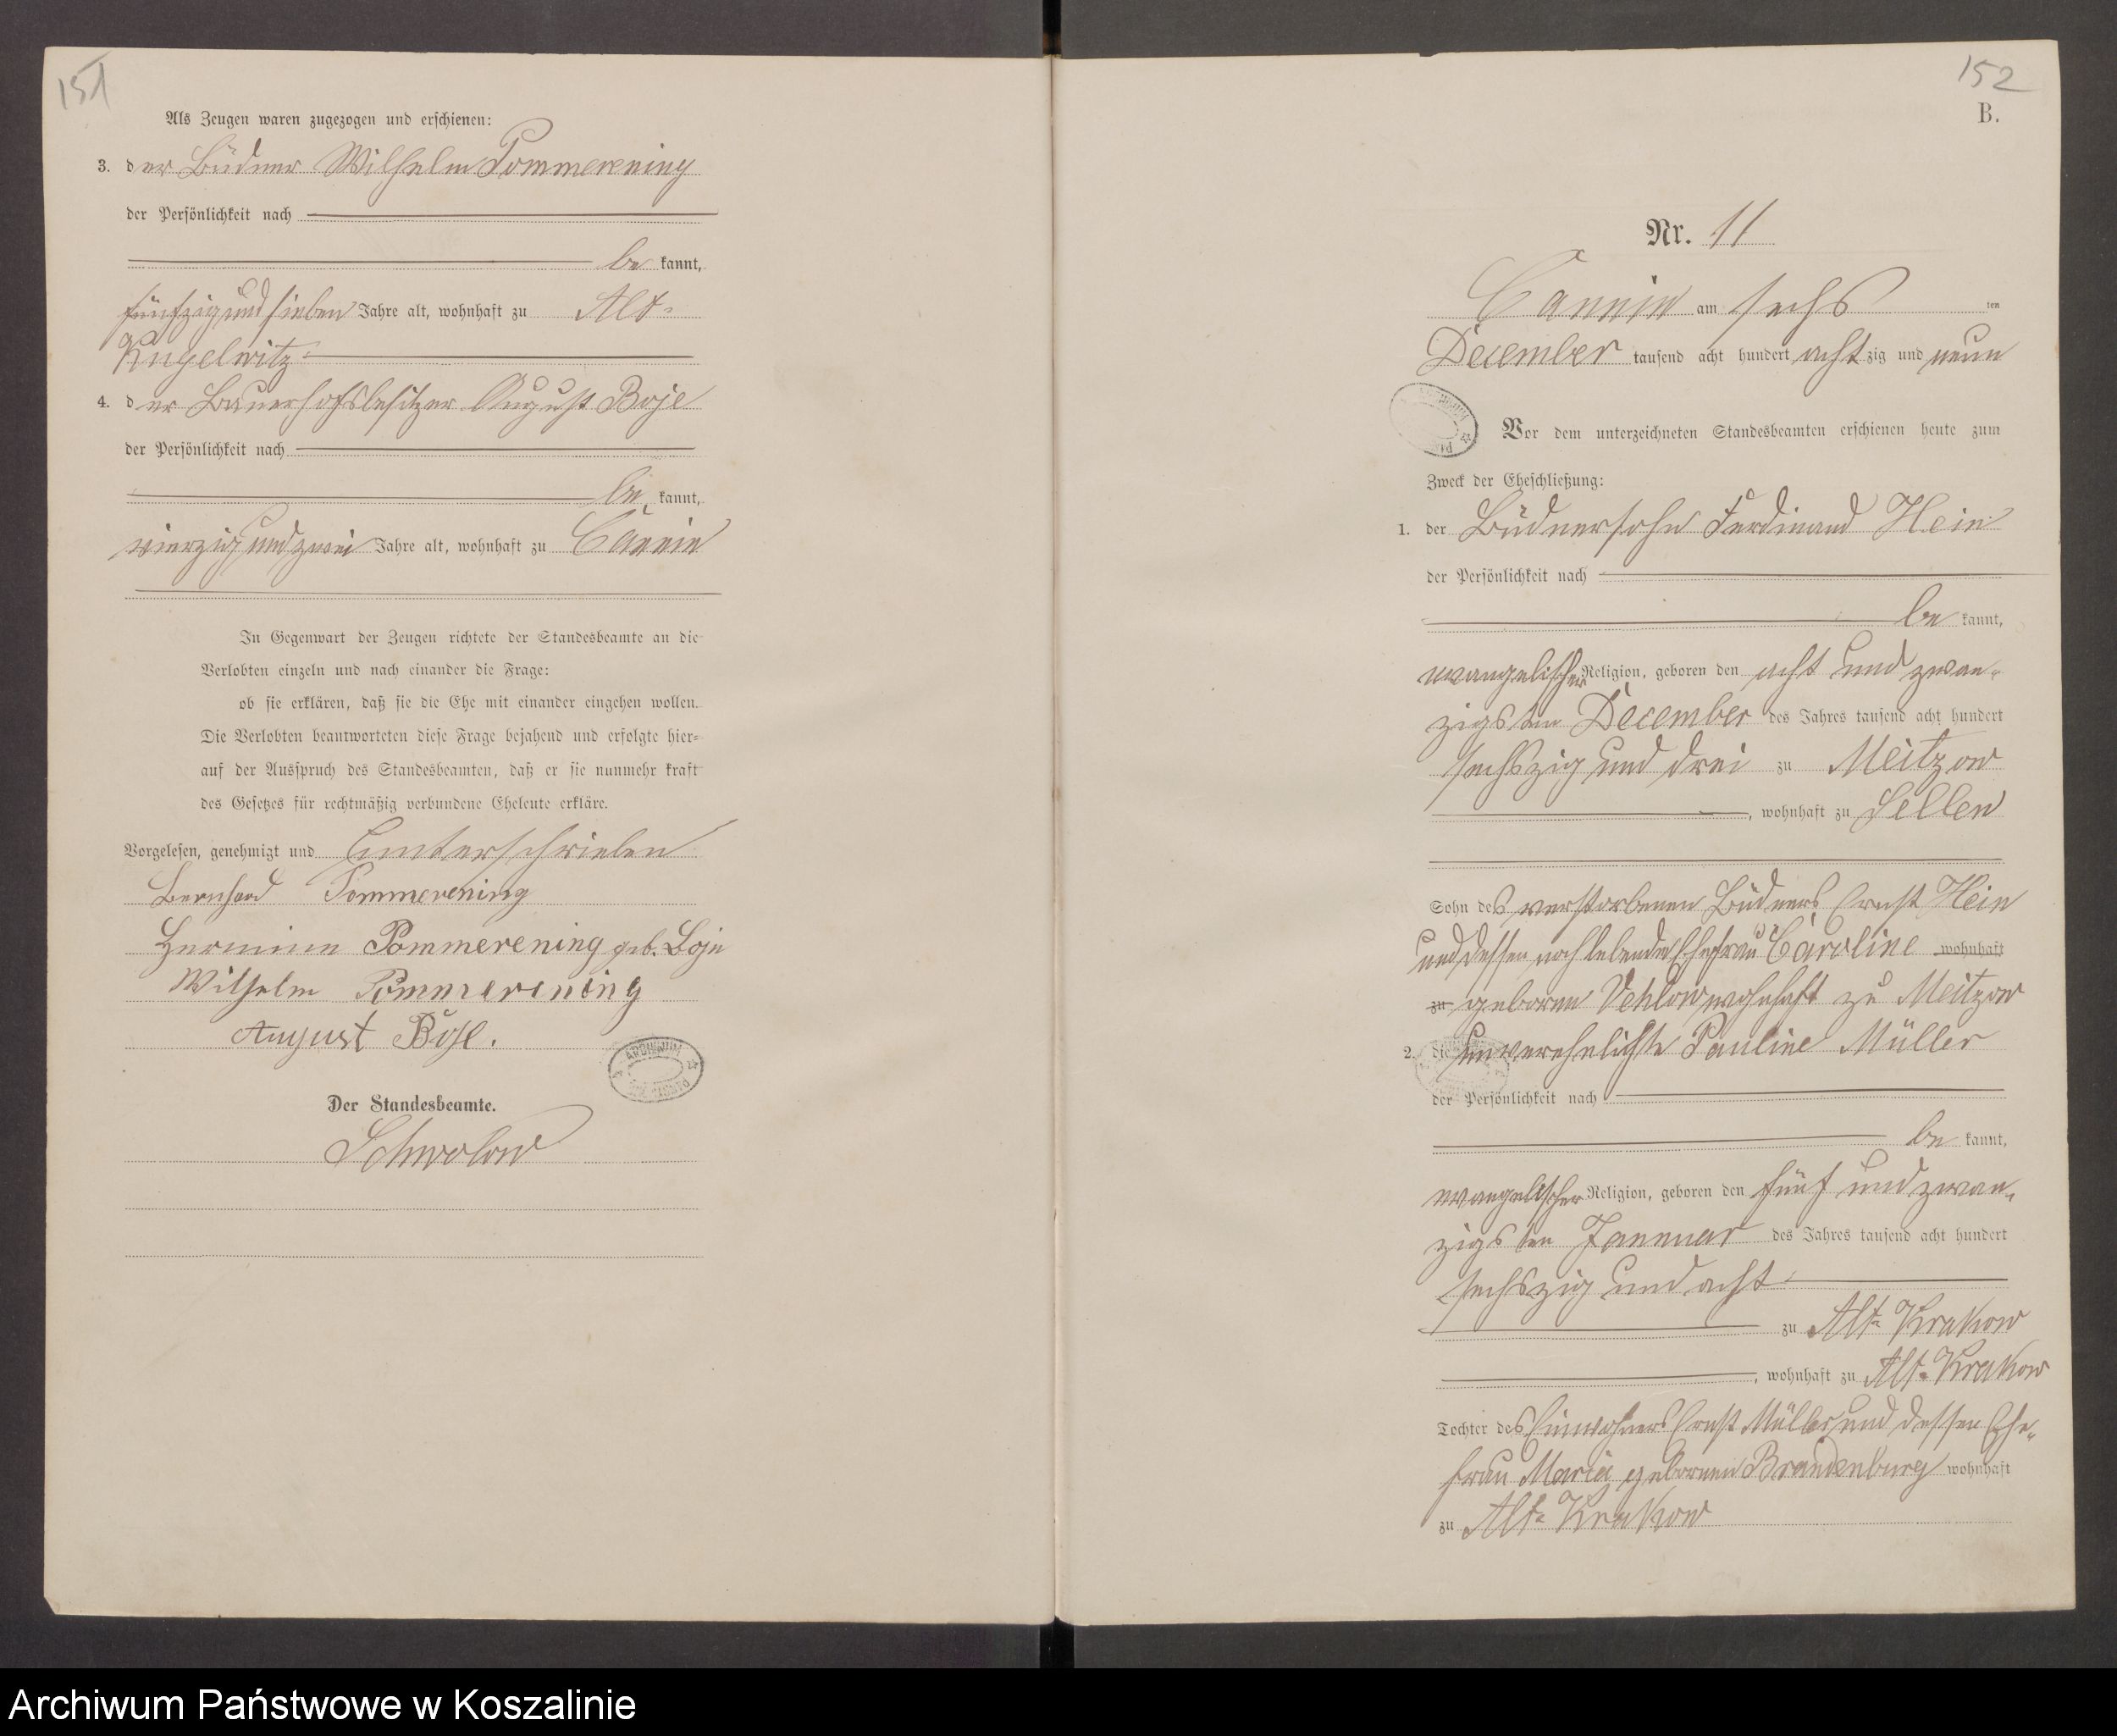 151
Als Zeugen waren zugezogen und erschienen:
3. der Büdner Wilhelm Pommerening
der Persönlichkeit nach
be kannt,
fünfzig und sieben Jahre alt, wohnhaft zu Alt-
Kugelwitz
4. der Bauerhofsbesitzer August Boje
der Persönlichkeit nach
be kannt,
vierzig und zwei Jahre alt, wohnhaft zu Cannin
In Gegenwart der Zeugen richtete der Standesbeamte an die
Verlobten einzeln und nach einander die Frage:
ob sie erklären, daß sie die Ehe mit einander eingehen wollen.
Die Verlobten beantworteten diese Frage bejahend und erfolgte hier-
auf der Ausspruch des Standesbeamten, daß er sie nunmehr kraft
des Gesetzes für rechtmäßig verbundene Eheleute erkläre.
Vorgelesen, genehmigt und unterschrieben
Bernhard Pommerening
Hermine Pommerening geb. Boje
Wilhelm Pommerening
August Boje.
ARCHIWUM
Der Standesbeamte.
Schwolow
152
B.
Nr. 11
Cannin am sechs ten
December tausend acht hundert achtzig und neun
Vor dem unterzeichneten Standesbeamten erschienen heute zum
Zweck der Eheschließung:
1. der Büdnersohn Ferdinand Hein
der Persönlichkeit nach
be kannt,
evangelischer Religion, geboren den acht und zwan-
zigsten December des Jahres tausend acht hundert
sechszig und drei zu Meitzow
, wohnhaft zu Sellen
Sohn des verstorbenen Büdners Ernst Hein
und dessen noch lebende Ehefrau Caroline wohnhaft
zu geborene Vehlow wohnhaft zu Meitzow
2. die unverehelichte Pauline Müller
der Persönlichkeit nach
be kannt,
evangelischer Religion, geboren den fünf und zwan-
zigsten Januar des Jahres tausend acht hundert
sechszig und acht
zu Alt-Krakow
, wohnhaft zu Alt-Krakow
Tochter des Einwohners Ernst Müller und dessen Ehe-
frau Maria geborenen Brandenburg wohnhaft
zu Alt-Krakow
Archiwum Państwowe w Koszalinie